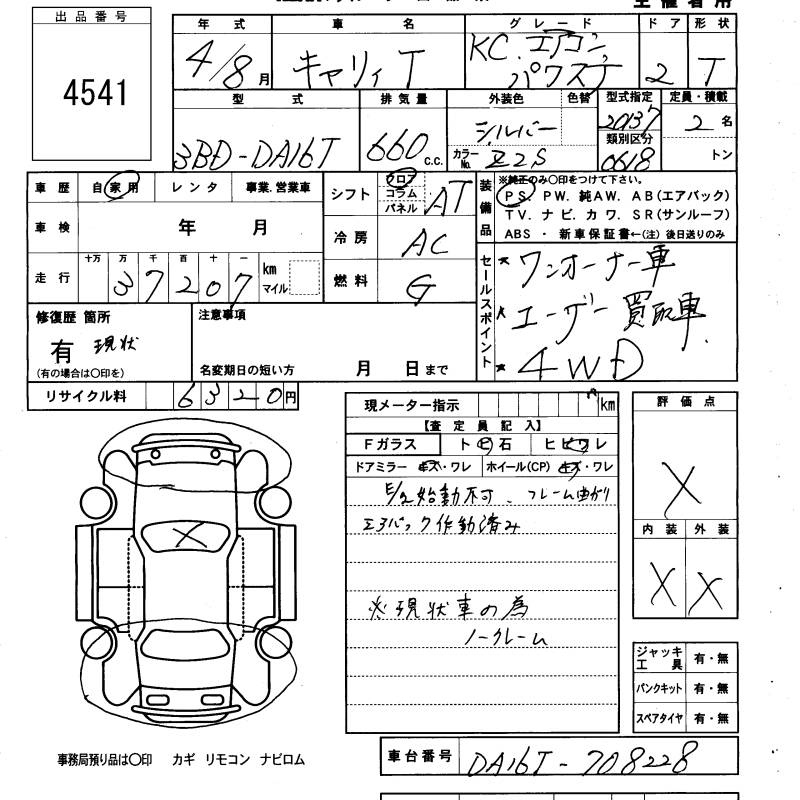 出品番号
4541
年式 車名 グレード ドア 形状
4/8月 キャリィT KC.エアコン,パワステ 2 T
型式 排気量 外装色 色替 型式指定 定員・積載
3BD-DA16T 660c.c. シルバー 20137 2名
カラーNo. Z2S 類別区分 0618 トン
車歴 自家用 レンタ 事業.営業車
車検 年 月
走行 十万 万 千 百 十 一 km マイル
37207
シフト フロア コラム パネル AT
冷房 AC
燃料 G
装備品 ※純正のみ○印をつけて下さい。
PS. PW. 純AW. AB(エアバック)
TV. ナビ. カワ. SR(サンルーフ)
ABS ・ 新車保証書←(注) 後日送りのみ
セールスポイント
* ワンオーナー車
* ユーザー買取車
* 4WD
修復歴 箇所
有 現状
(有の場合は○印を)
注意事項
名変期日の短い方 月 日まで
リサイクル料 6320円
現メーター指示 km
【査定員記入】
Fガラス トビ石 ヒビワレ
ドアミラー キズ・ワレ ホイール(CP) キズ・ワレ
E/g始動不可、フレーム曲がり
エアバック作動済み
※現状車の為
ノークレーム
評価点
X
内装 外装
X X
ジャッキ工具 有・無
パンクキット 有・無
スペアタイヤ 有・無
X
事務局預り品は○印 カギ リモコン ナビロム
車台番号 DA16T-708228